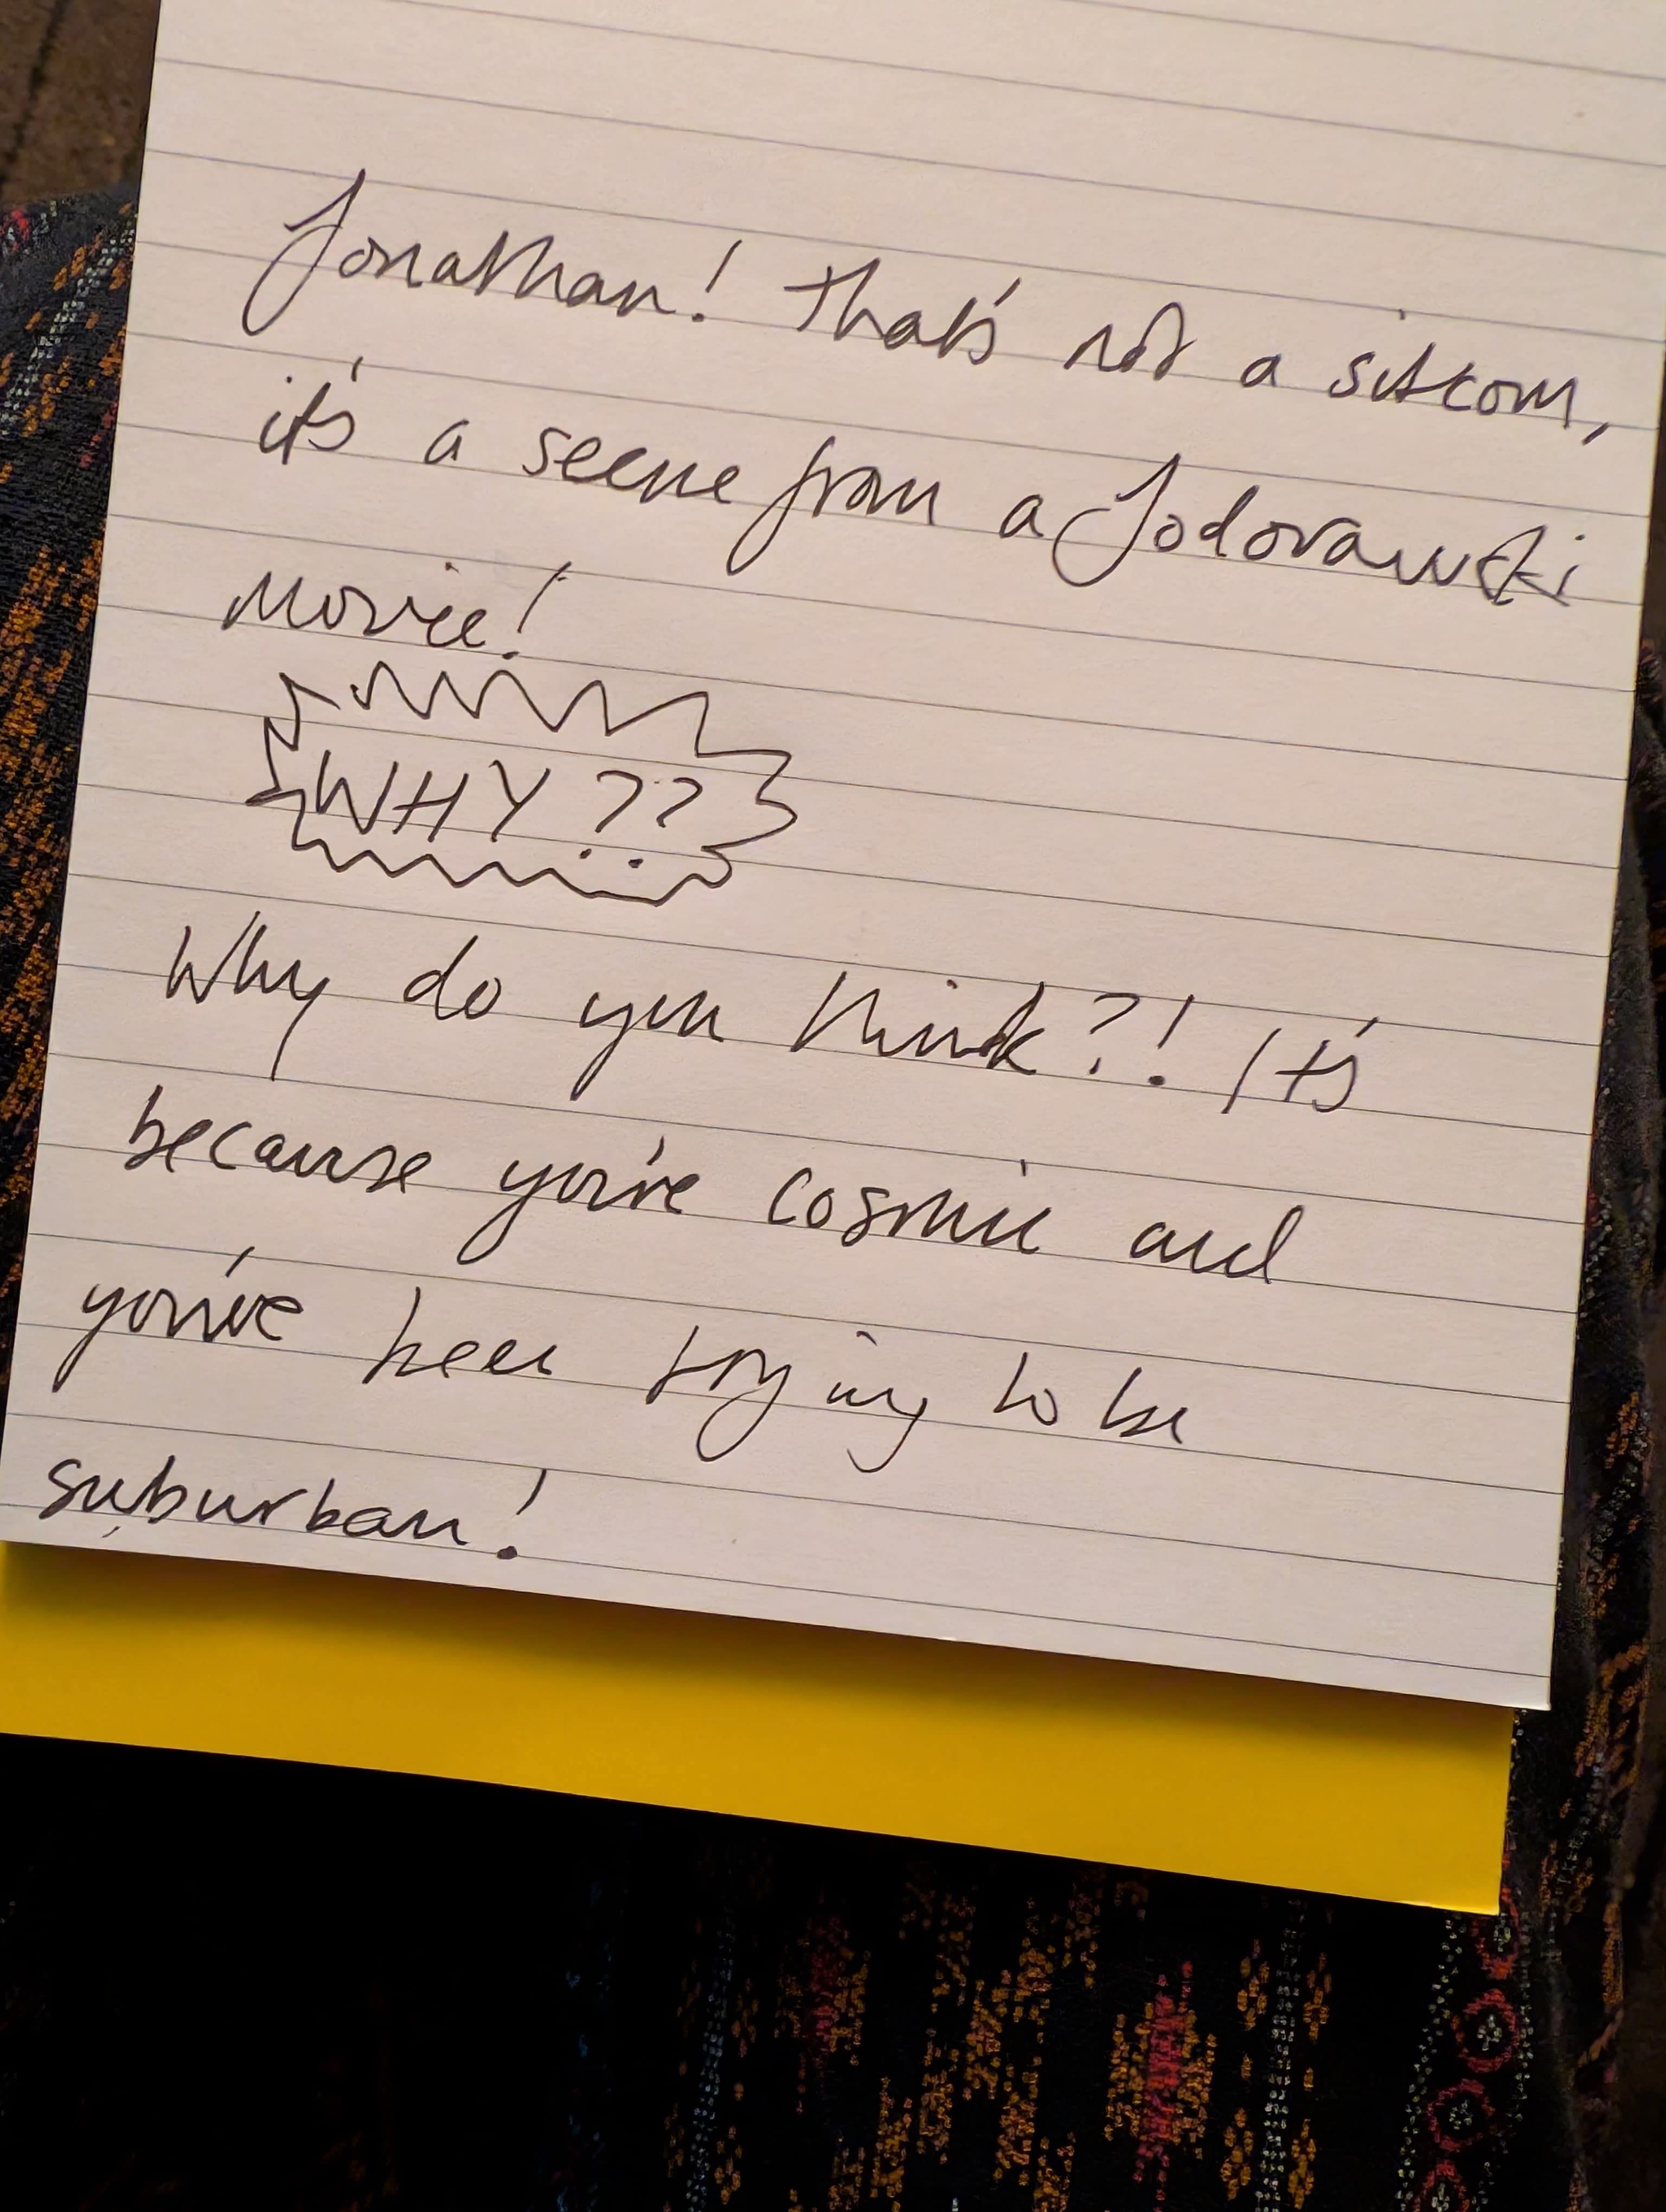 Jonathan! That's not a sitcom,
it's a scene from a Jodorawski
Movie!
WHY??
Why do you think?! It's
because you're cosmic and
you've been trying to be
suburban!